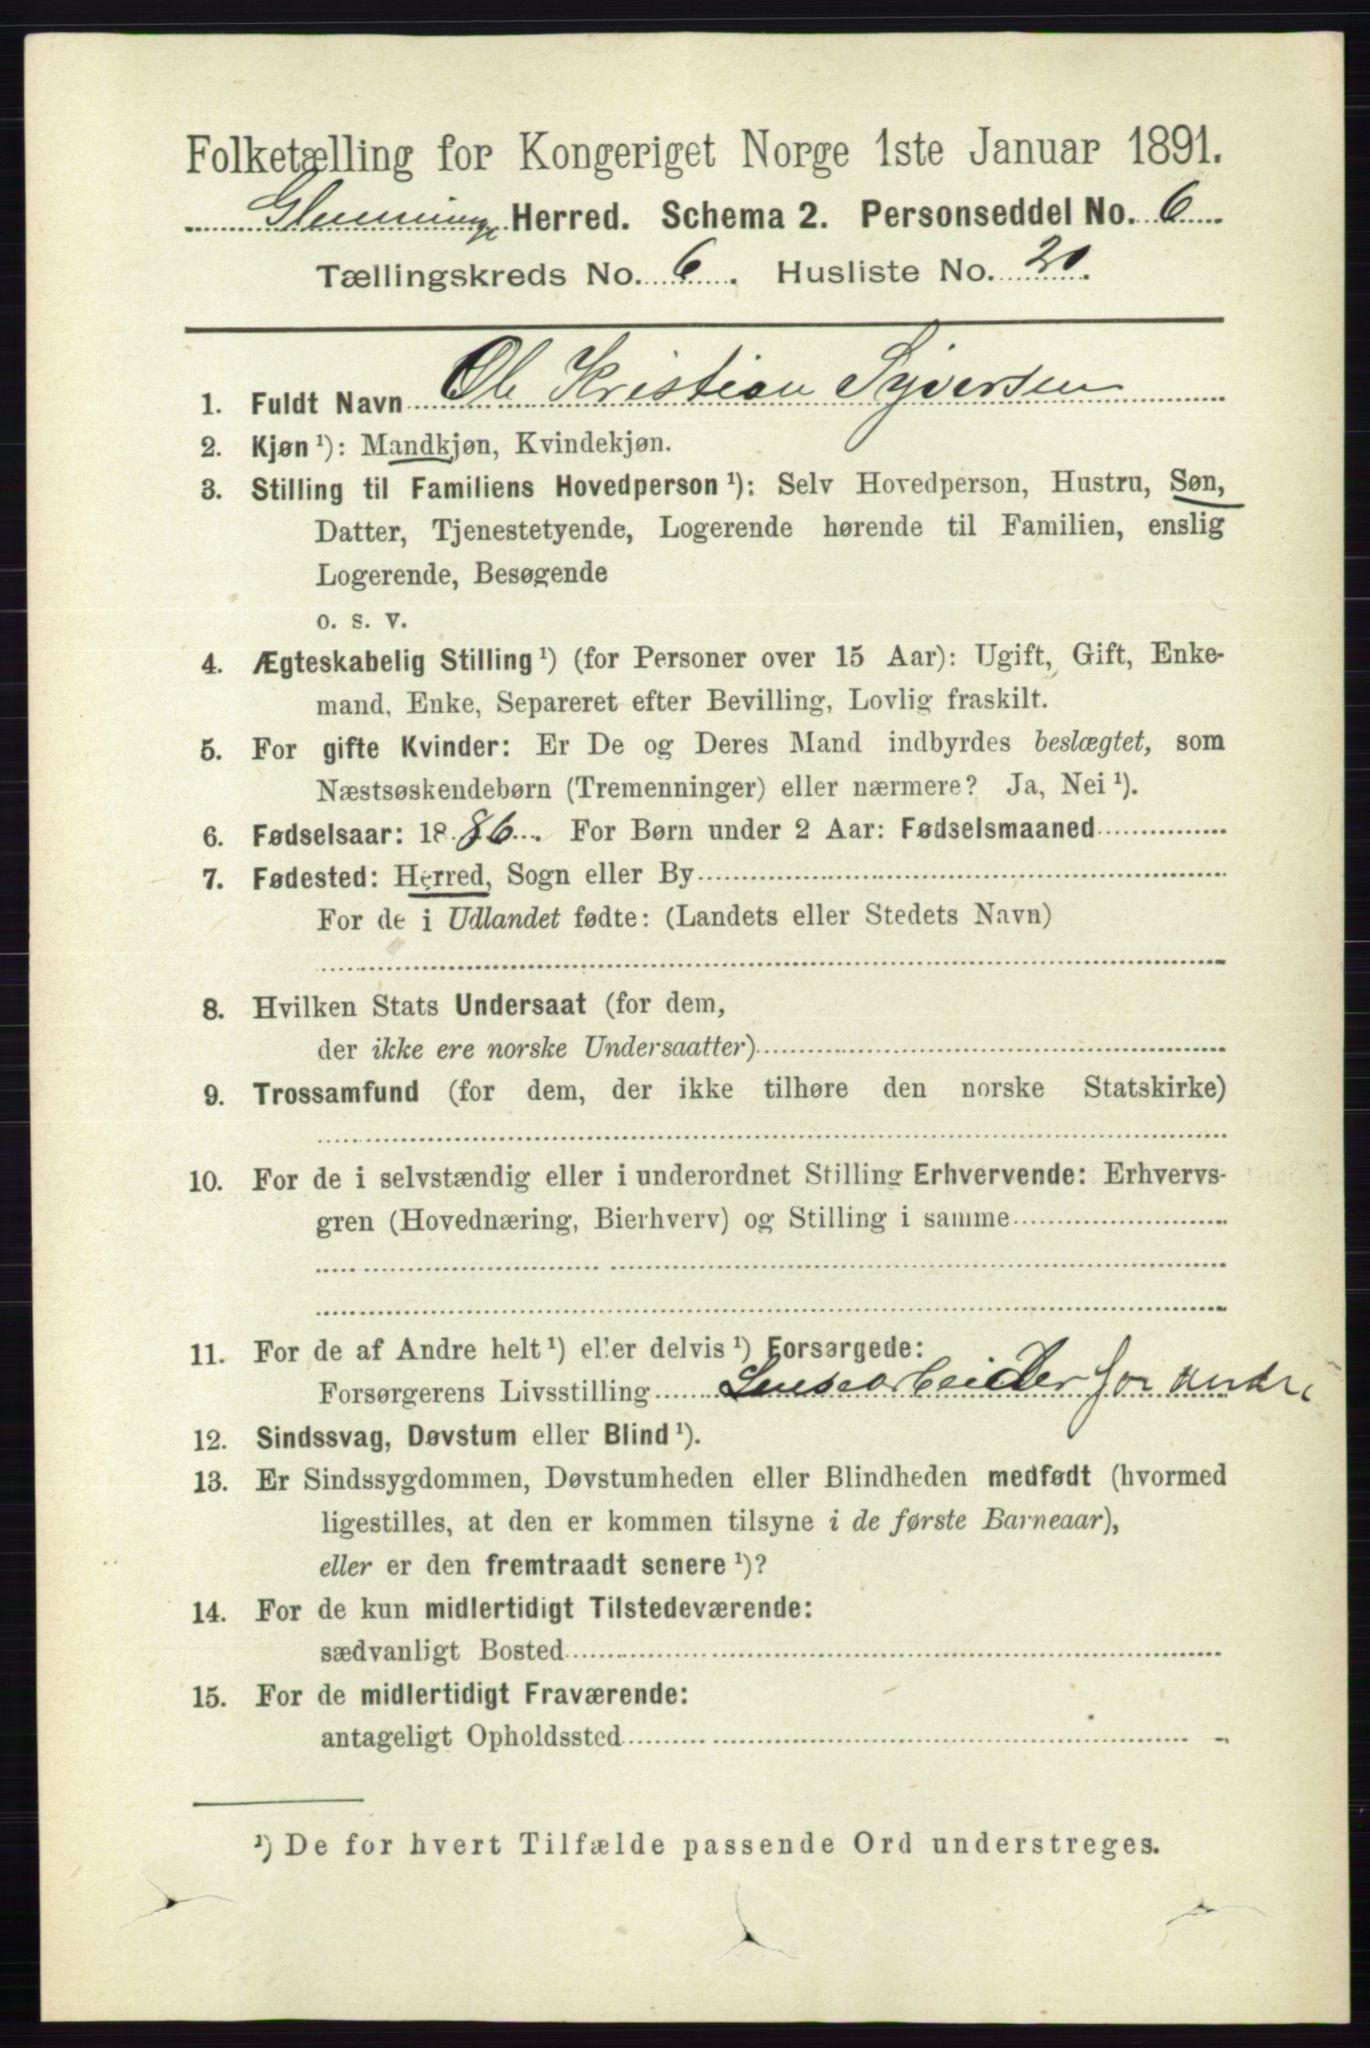 Folketælling for Kongeriget Norge 1ste Januar 1891.
Glemminge Herred. Schema 2. Personseddel No. 6
Tællingskreds No. 6. Husliste No. 20.
1. Fuldt Navn Ole Kristian Syversen
2. Kjøn ¹): Mandkjøn, Kvindekjøn.
3. Stilling til Familiens Hovedperson ¹): Selv Hovedperson, Hustru, Søn,
Datter, Tjenestetyende, Logerende hørende til Familien, enslig
Logerende, Besøgende
o. s. v.
4. Ægteskabelig Stilling ¹) (for Personer over 15 Aar): Ugift, Gift, Enke-
mand, Enke, Separeret efter Bevilling, Lovlig fraskilt.
5. For gifte Kvinder: Er De og Deres Mand indbyrdes beslægtet, som
Næstsøskendebørn (Tremenninger) eller nærmere? Ja, Nei ¹).
6. Fødselsaar: 1886. For Børn under 2 Aar: Fødselsmaaned
7. Fødested: Herred, Sogn eller By
For de i Udlandet fødte: (Landets eller Stedets Navn)
8. Hvilken Stats Undersaat (for dem,
der ikke ere norske Undersaatter)
9. Trossamfund (for dem, der ikke tilhøre den norske Statskirke)
10. For de i selvstændig eller i underordnet Stilling Erhvervende: Erhvervs-
gren (Hovednæring, Bierhverv) og Stilling i samme
11. For de af Andre helt ¹) eller delvis ¹) Forsørgede:
Forsørgerens Livsstilling Lensearbeider for andre
12. Sindssvag, Døvstum eller Blind ¹).
13. Er Sindssygdommen, Døvstumheden eller Blindheden medfødt (hvormed
ligestilles, at den er kommen tilsyne i de første Barneaar),
eller er den fremtraadt senere ¹)?
14. For de kun midlertidigt Tilstedeværende:
sædvanligt Bosted
15. For de midlertidigt Fraværende:
antageligt Opholdssted
¹) De for hvert Tilfælde passende Ord understreges.